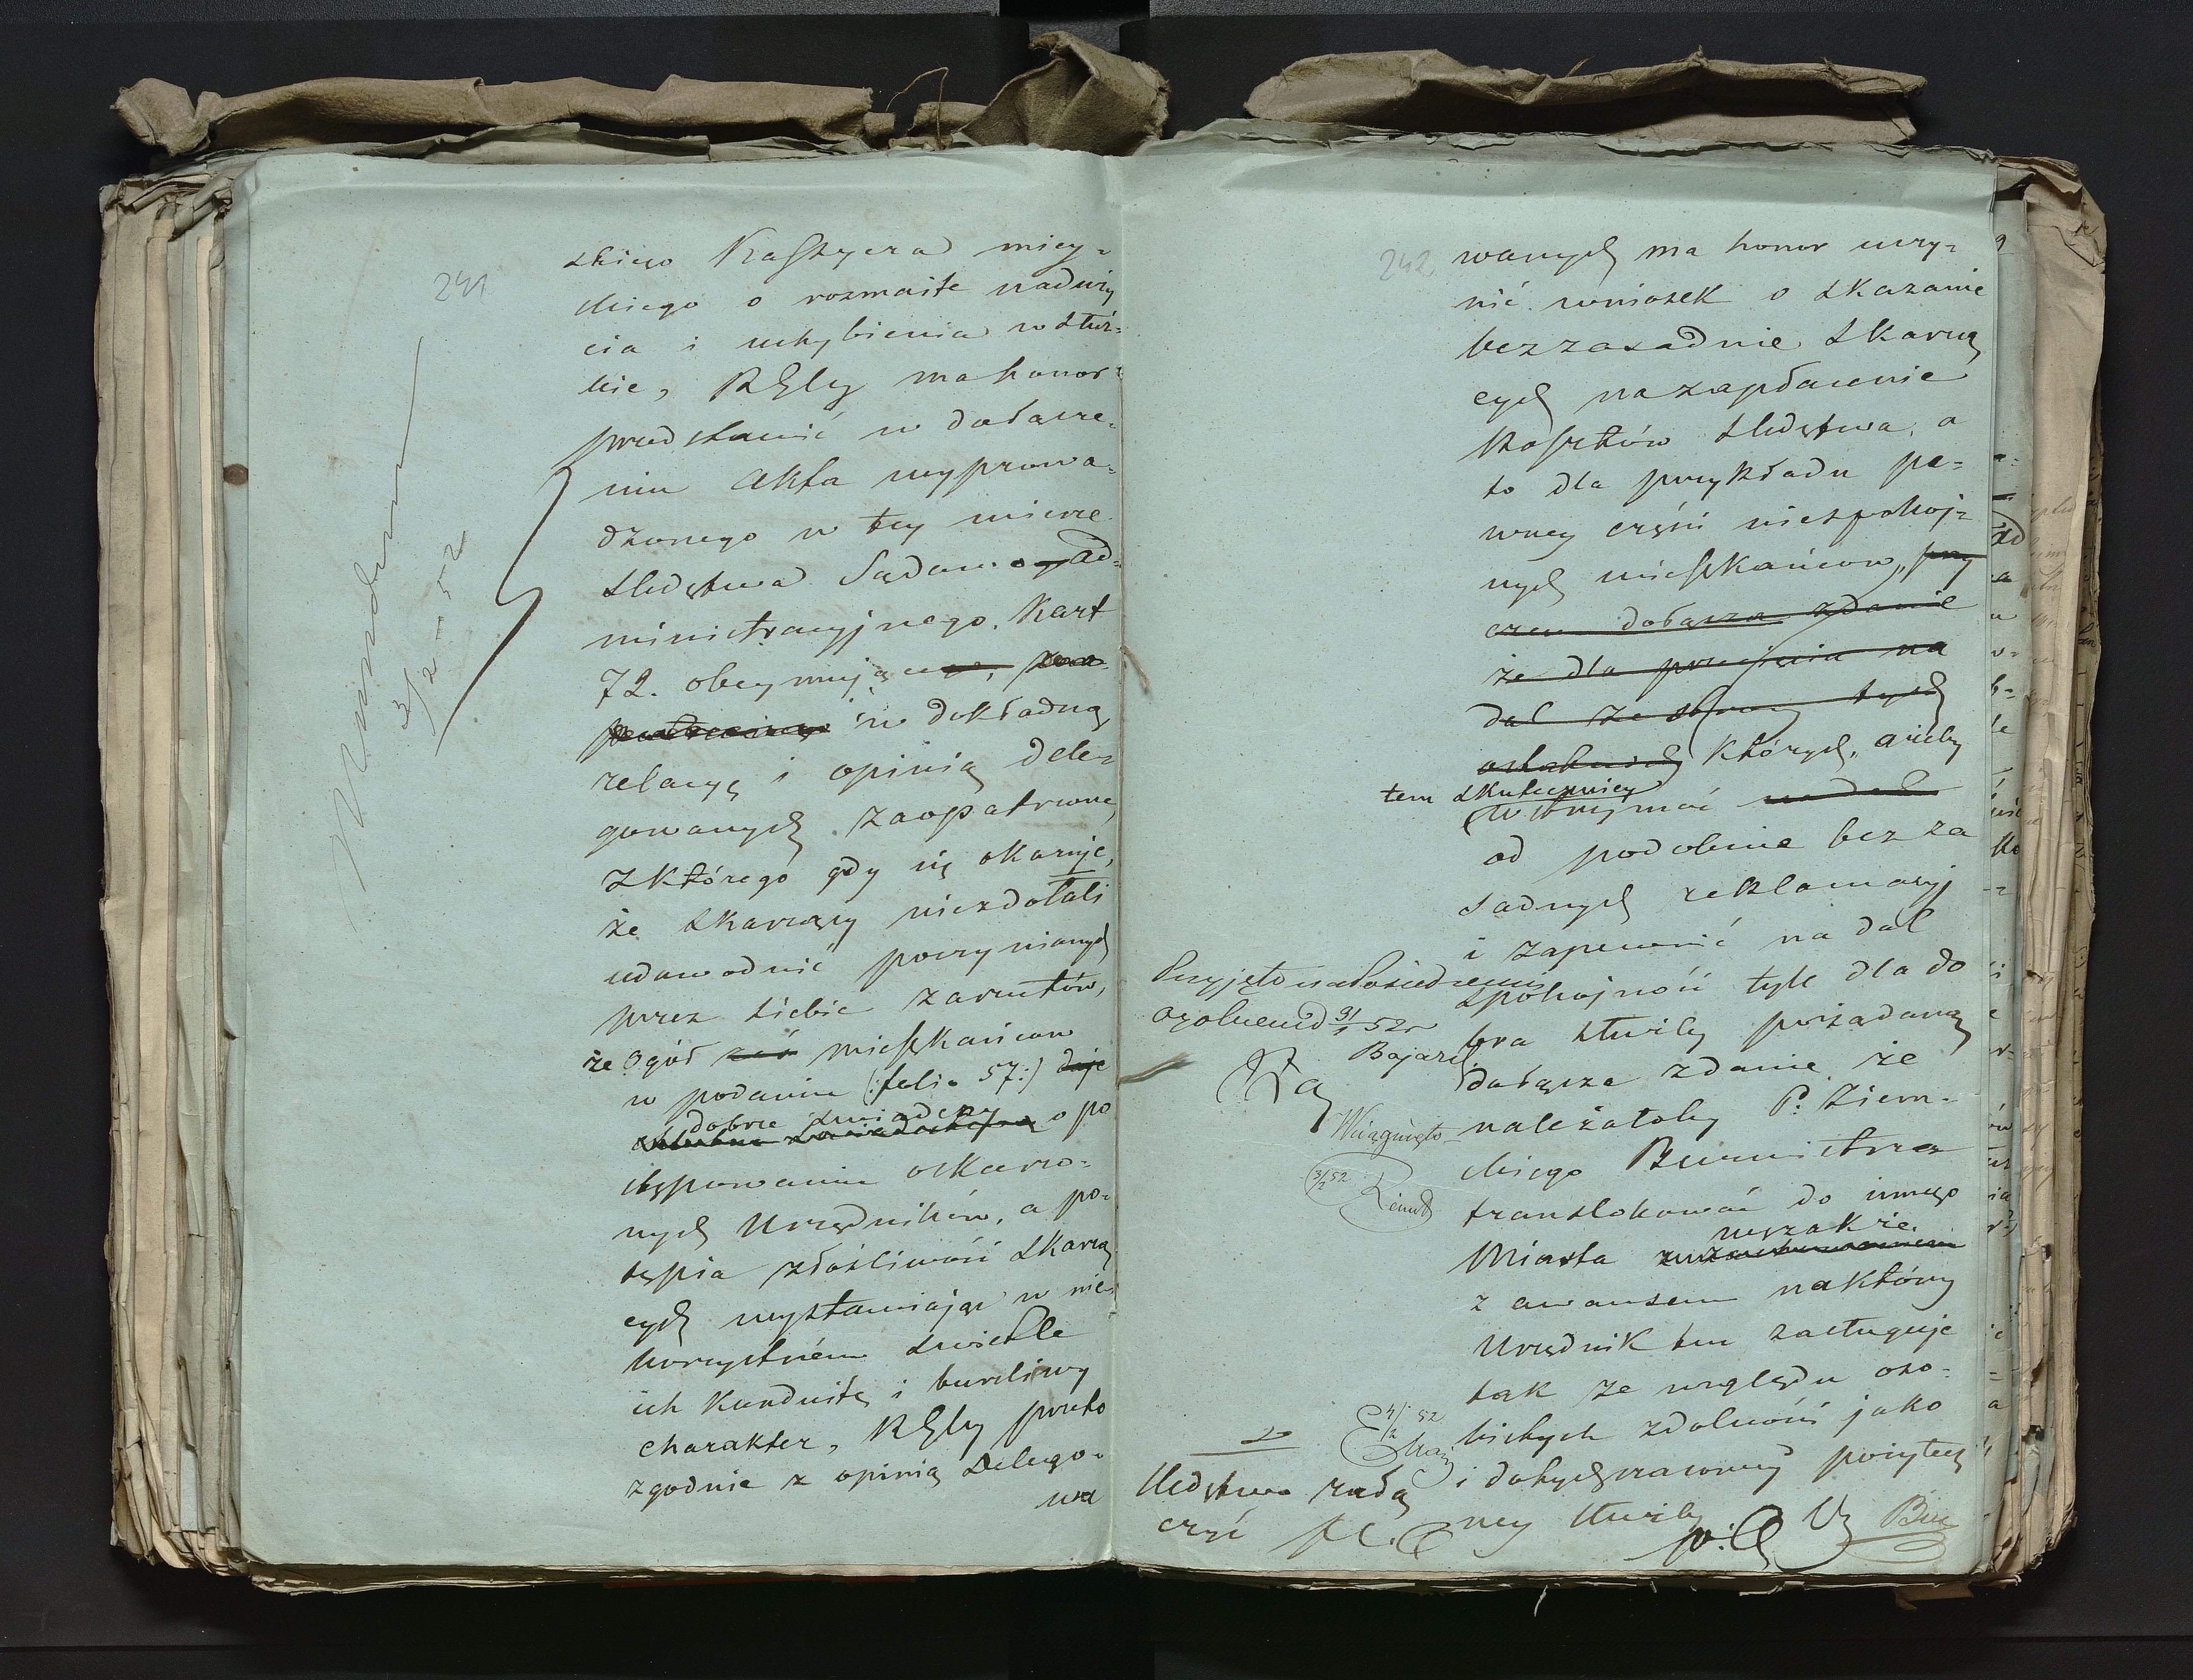 241
skiego Kassyera miey-
skiego o rozmaite naduży
cia i uchybienia w służ-
bie, RGlny ma honor
przedstawić w dołącze-
niu Akta wyprowa-
dzonego w tey mierze
śledztwa Sądowo-ad-
ministracyjnego. Kart
72. obeymujące
w dokładną
relacyę i opinią dele-
gowanych zaopatrzone,
z którego gdy się okazuje,
że skarżący niezdołali
udowodnić poczynionych
przez siebie zarzutów,
że Ogół zaś mieszkańcow
w podaniu (: folio 57:) daje
dobrze świadczy
o po
stępowaniu oskarżo-
nych Urzędników, a po-
tępia złośliwość skarżą
cych wystawiając w nie
korzystném świetle
ich konduitę i burzliwy
charakter, RGlny przeto
zgodnie z opinią Delego-
wa
Mundum
3/2 - 52
242
wanych ma honor uczy-
nić wniosek o skazanie
bezzasadnie skarżą
cych na zapłacenie
kosztów śledztwa, a
to dla przykładu pe-
wney części niespokoj-
nych mieszkańcow, przy
czem dołącza zdanie
że dla przecięcia na
dal ze strony tych
ostatnich których, ażeby
tem skuteczniey
wstrzymać na dal
od podobnie bezza
sadnych reklamacyj
i zapewnić na dal
spokojność tyle dla do
bra służby pożądaną
dołącza zdanie że
należałoby P. Ziem-
skiego Burmistrza
translokować do innego
wszakże
Miasta
z awansem na który
Urzędnik ten zasługuje
tak ze względu oso-
bistych zdolności jako
i dotychczasowey pożytecz
ney służby
Przyjęto na Posiedzeniu
Ogolnem d 31/1 52 r
Wciągnięto
3/2 52
4/2 52
Śledztwo załą
czyć